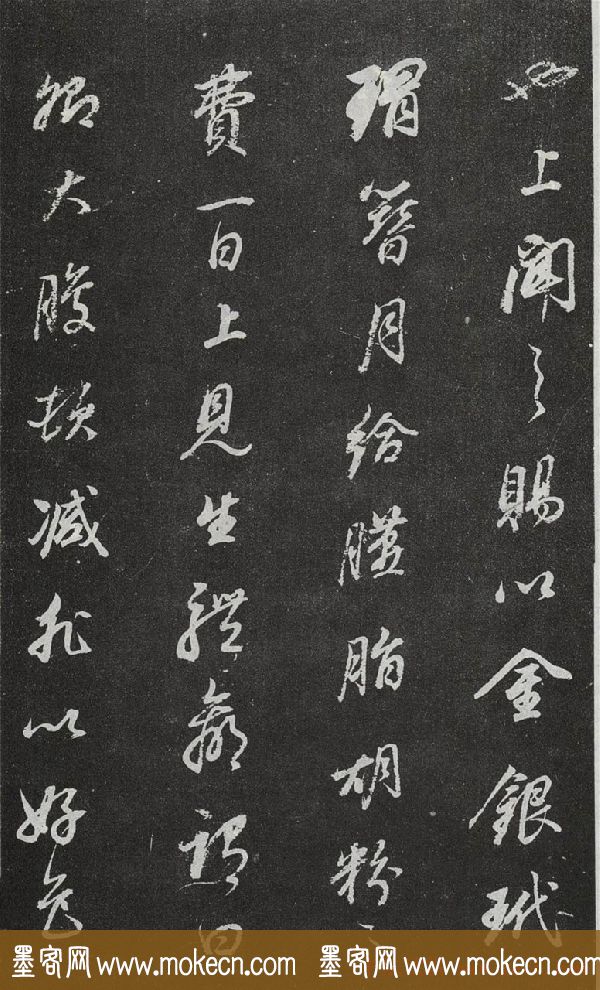 也上聞之賜以金銀玳
瑁簪月給臙脂胡粉之
費一日上見生體羸謂曰
卿大腹頓減非以好色
墨客网 www.mokecn.com 墨客网 www.mokecn.com